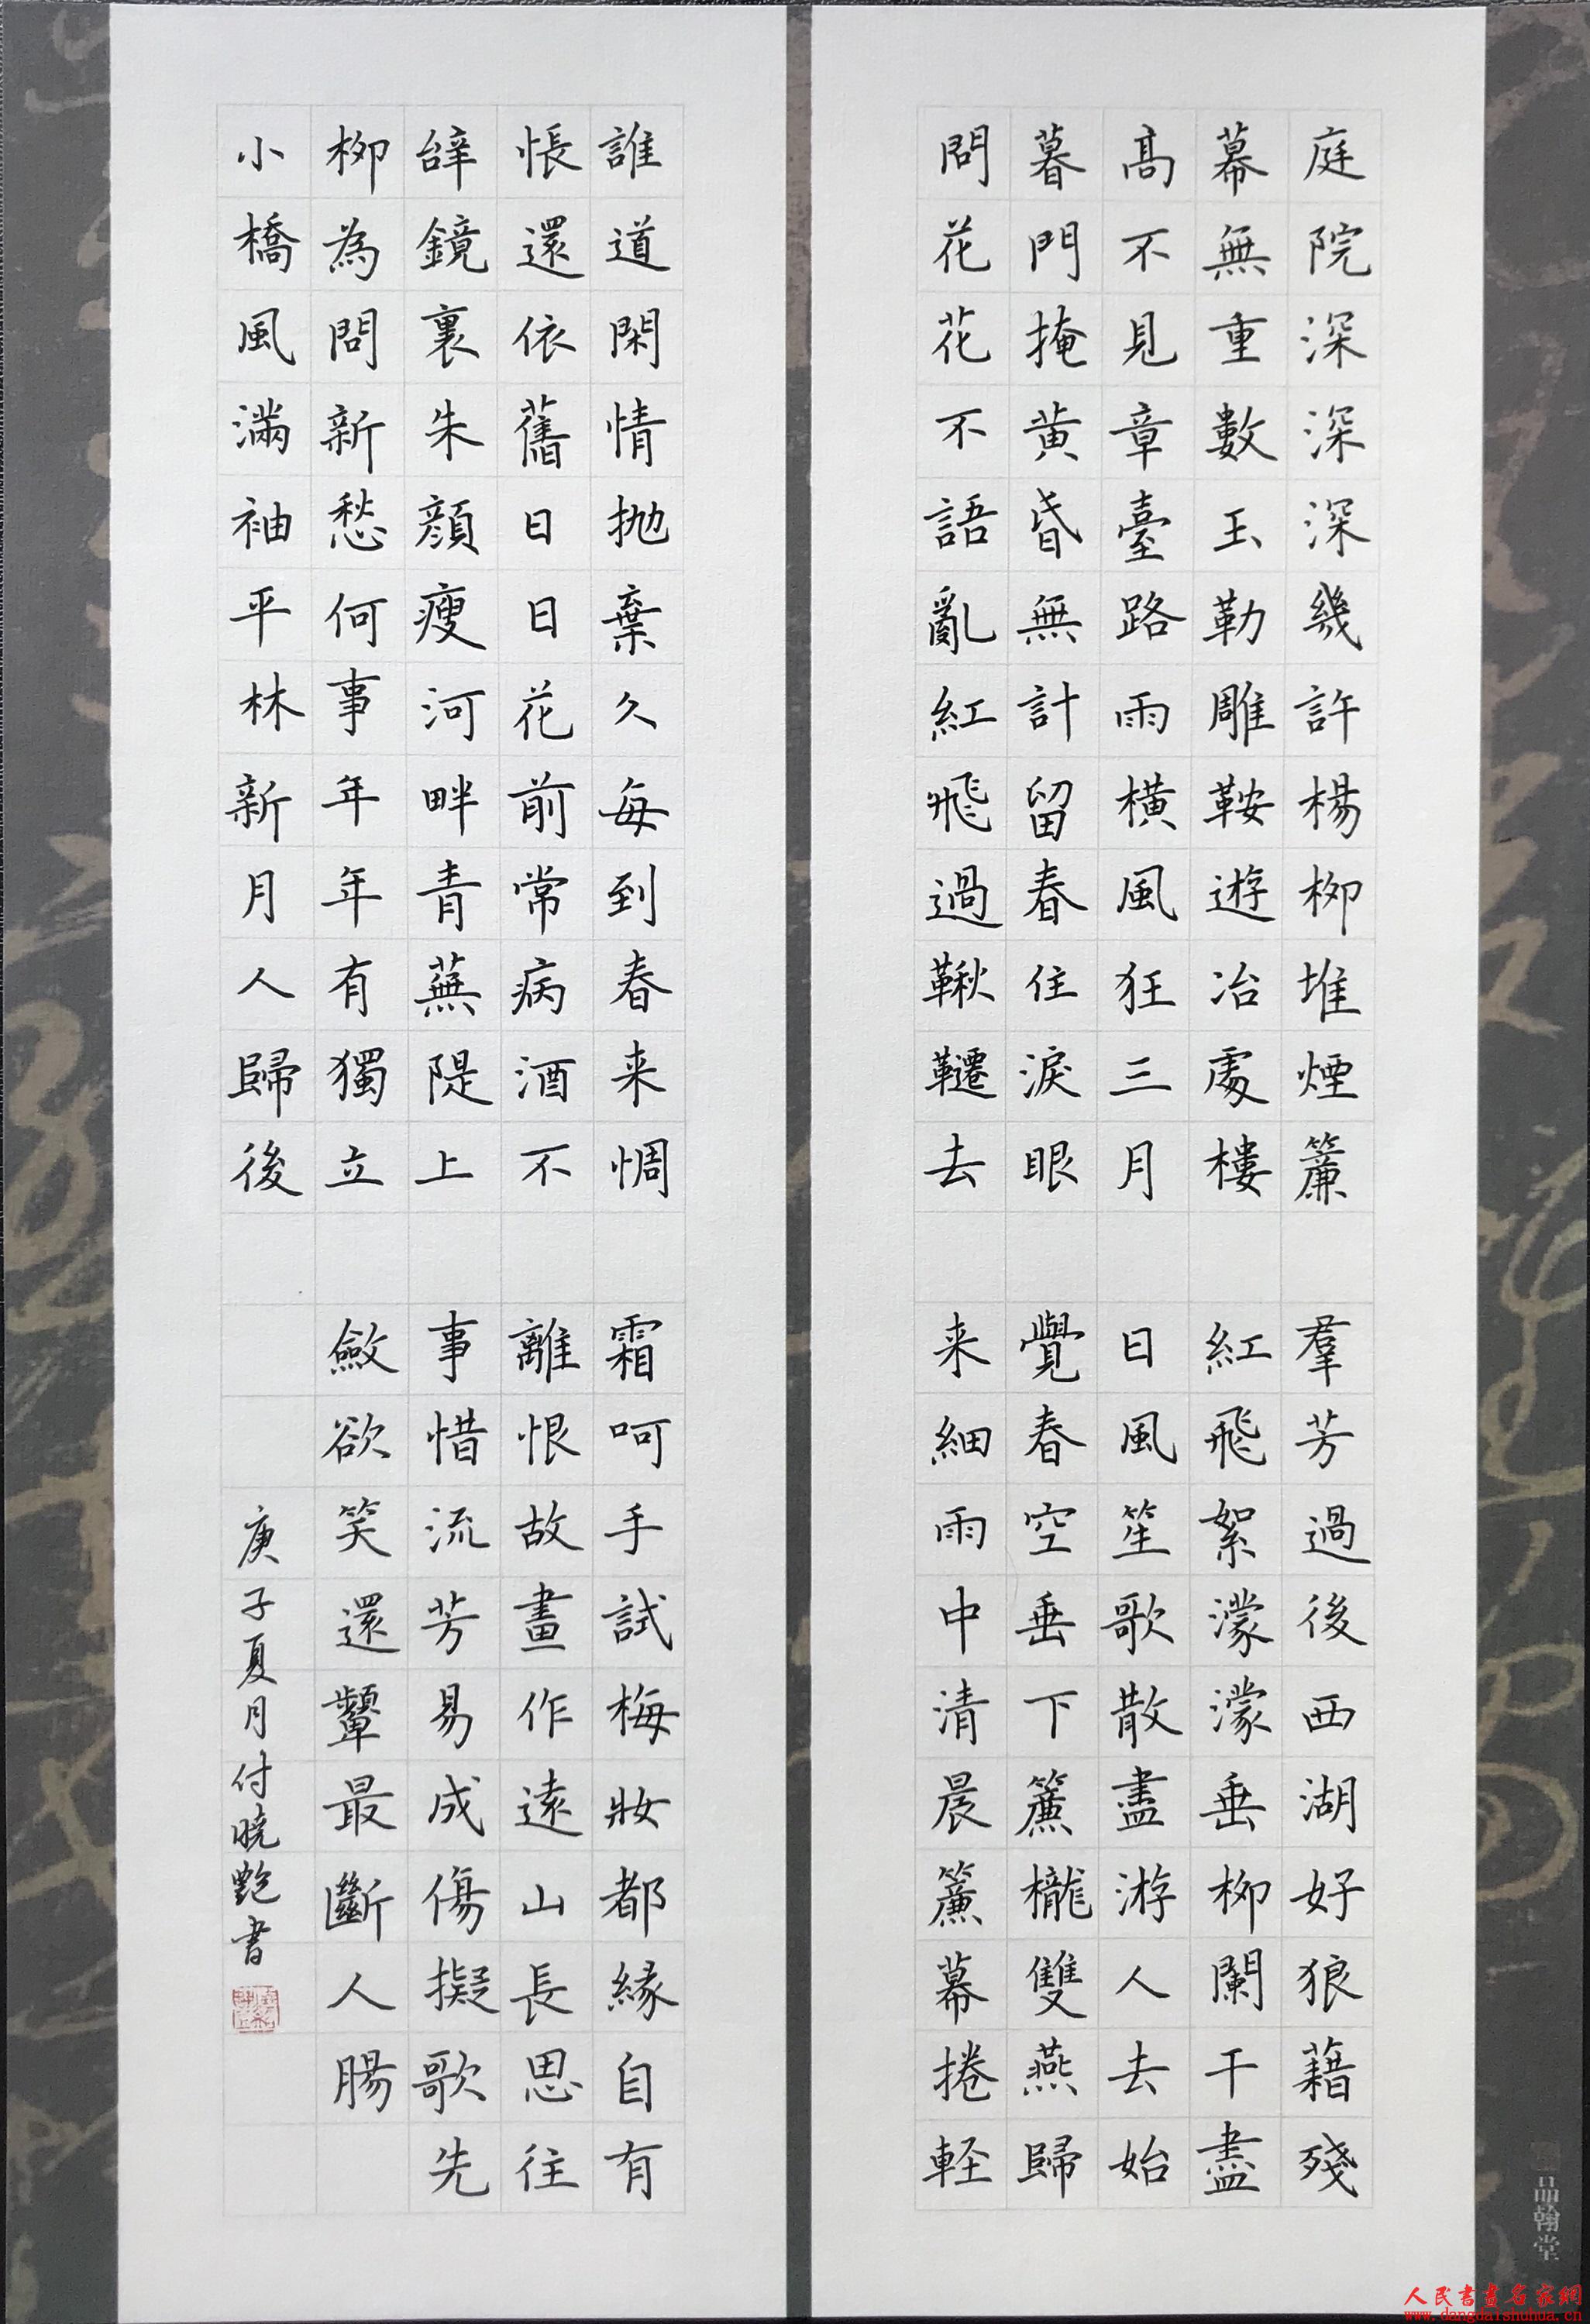 庭院深深深幾許楊柳堆煙簾
幕無重數玉勒雕鞍遊冶處樓
高不見章臺路雨橫風狂三月
暮門掩黃昏無計留春住淚眼
問花花不語亂紅飛過鞦韆去
羣芳過後西湖好狼藉殘
紅飛絮濛濛垂柳闌干盡
日風笙歌散盡游人去始
覺春空垂下簾櫳雙燕歸
来細雨中清晨簾幕捲軽
誰道閑情抛棄久每到春来惆
悵還依舊日日花前常病酒不
辭鏡裏朱顔瘦河畔青蕪隄上
柳為問新愁何事年年有獨立
小橋風滿袖平林新月人歸後
霜呵手試梅妝都緣自有
離恨故畫作遠山長思往
事惜流芳易成傷擬歌先
斂欲笑還顰最斷人腸
庚子夏月付曉艷書
品翰堂
人民書畫名家網
www.dangdaishuhua.cn